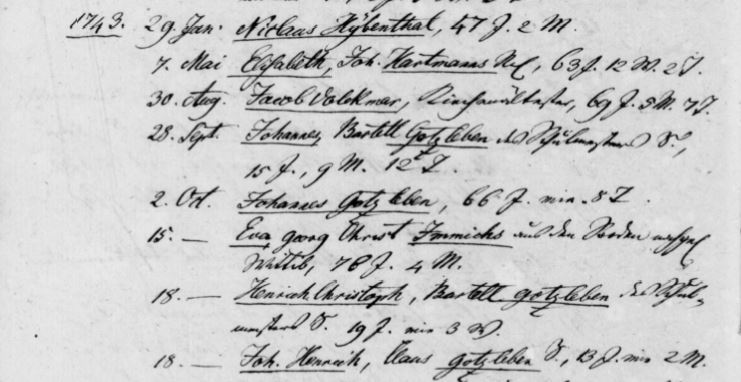 1743. 29. Jan. Niclaus Hÿbenthal, 47 J. 2 M.
7. Mai Elisabeth, Joh. Hartmanns Rel., 63 J. 12 W. 2 T.
30. Aug. Jacob Volckmar, Kirchenältester, 69 J. 5 M. 7 T.
28. Sept. Johannes, Bartell Gotzleben des Schulmeisters S.,
15 J., 9 M. 12 T.
2. Oct. Johannes Gotzleben, 66 J. min. 8 T.
15. — Eva Georg Christ Immichs aus den
Wittib, 78 J. 4 M.
18. — Henrich Christoph, Bartell Gotzleben des Schul-
meisters S. 19 J. min 3 W.
18. — Joh. Henrich, Claus Gotzleben S., 13 J. min 2 M.